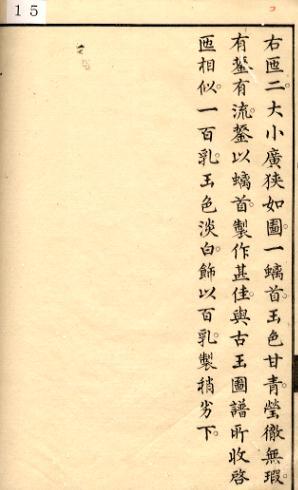 15
右匜二大小廣狹如圖一螭首玉色甘青瑩徹無瑕。
有鋬有流鋬以螭首製作甚佳與古玉圖譜所收啓
匜相似。一百乳玉色淡白。飾以百乳製稍劣下。